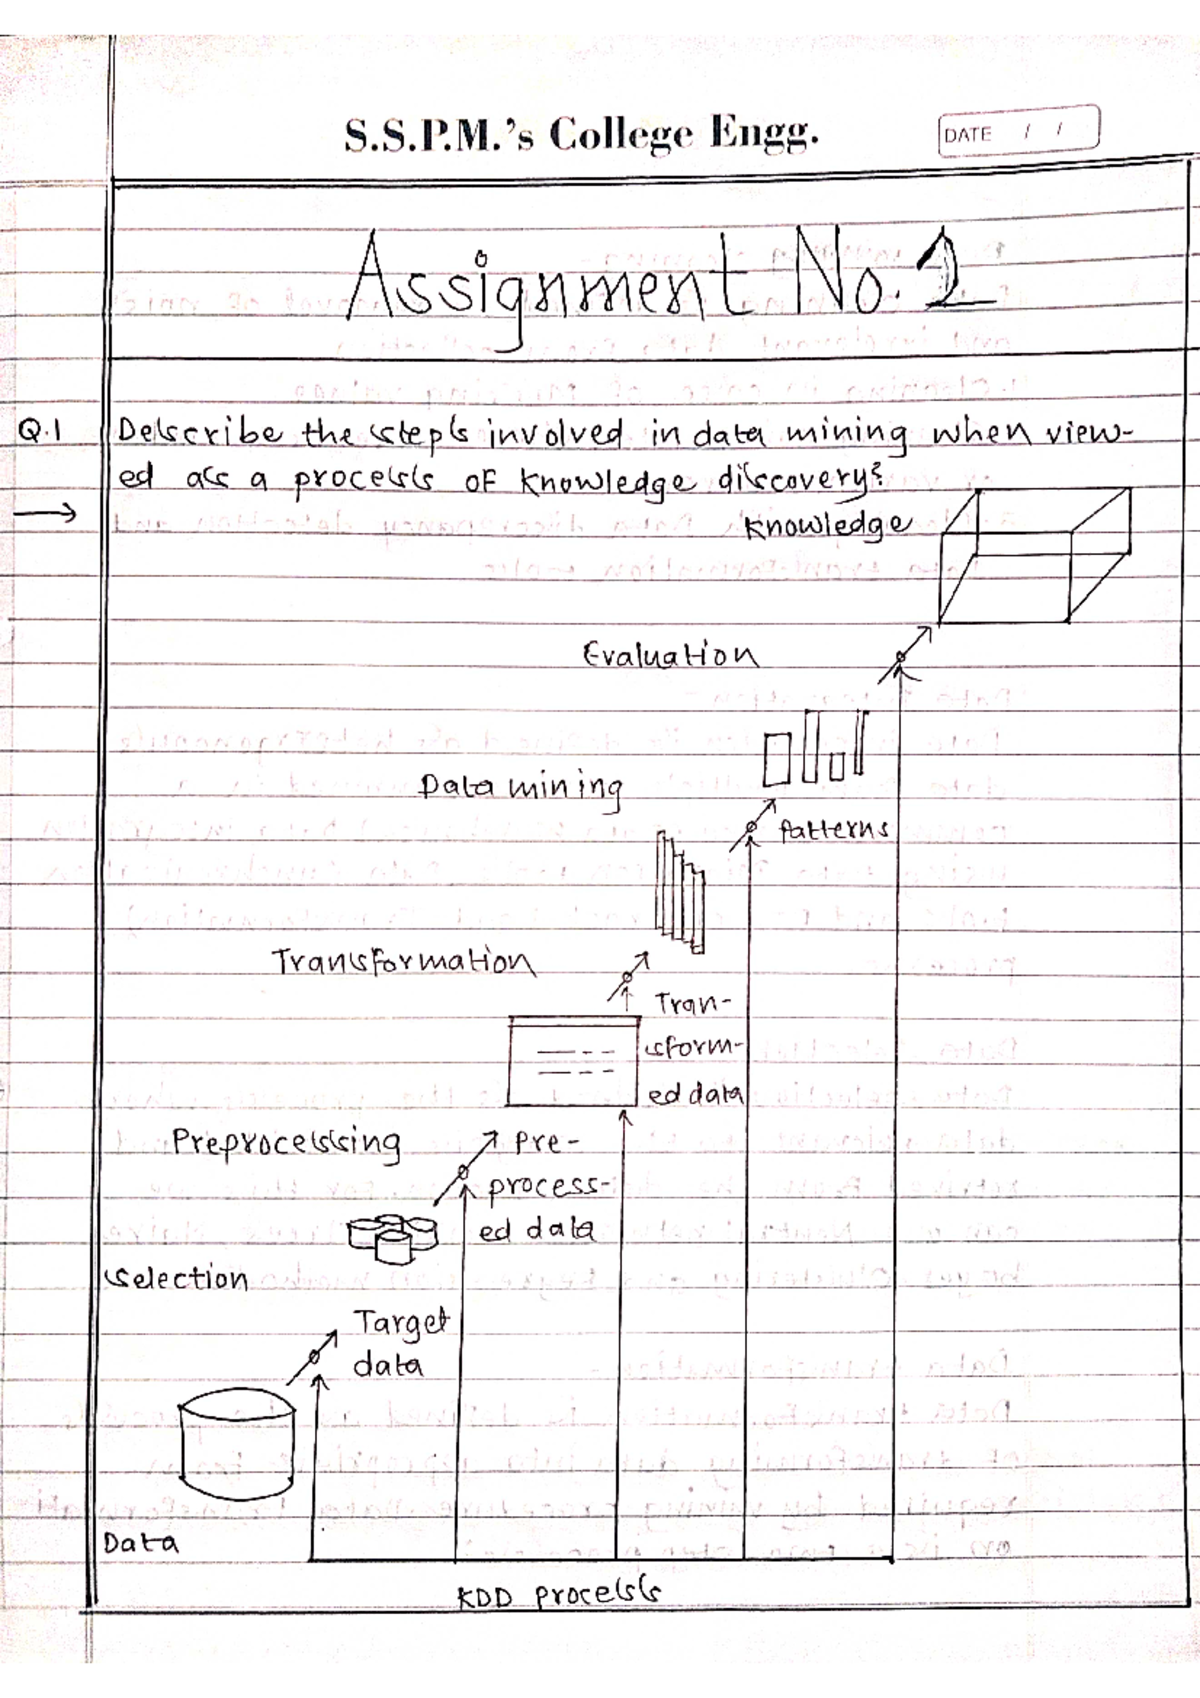 S.S.P.M.'s College Engg.
DATE / /
Assignment No. 2
Q.1 Describe the steps involved in data mining when view-
ed as a process of knowledge discovery?
→
Knowledge
Evaluation
Data mining
patterns
Transformation
Tran-
sform-
ed data
Preprocessing
Pre-
process-
ed data
selection
Target
data
Data
KDD process